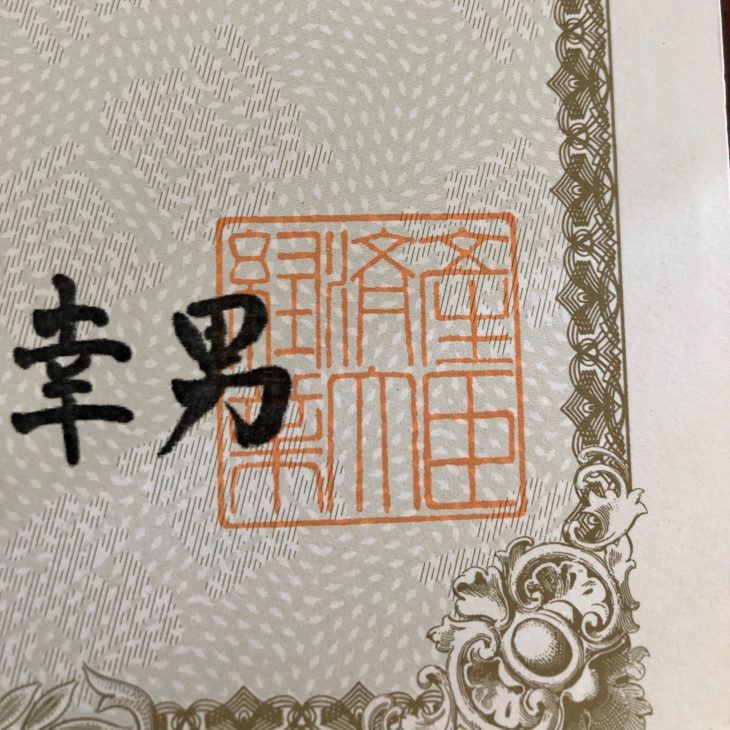 幸男
経済産
業大臣